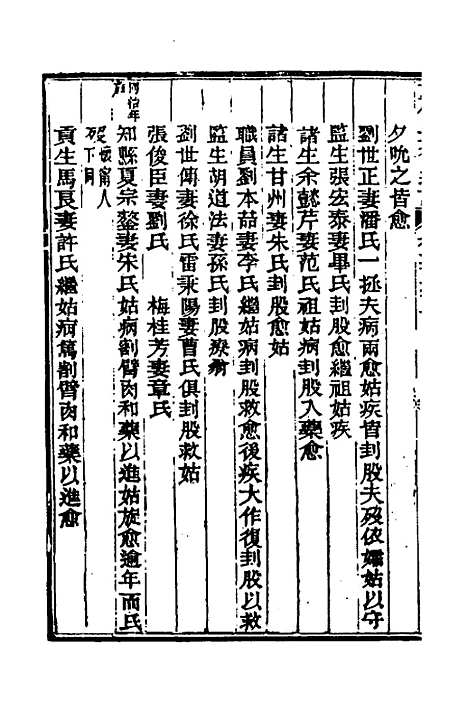 夕吮之皆愈
劉世正妻潘氏一拯夫病兩愈姑疾皆刲股夫歿依孀姑以守
監生張玄泰妻畢氏刲股愈繼祖姑疾
諸生余懿芹妻范氏祖姑病刲股入藥愈
諸生甘州妻朱氏刲股愈姑
職員劉本喆妻李氏繼姑病刲股救愈後疾大作復刲股以救
監生胡道法妻孫氏刲股療
劉世傳妻徐氏雷秉陽妻曹氏俱刲股救姑
張俊臣妻劉氏 梅桂芳妻章氏
知縣夏宗鏊妻朱氏姑病割臂肉和藥以進姑旋愈逾年而氏
懷甯人
下同
貢生馬良妻許氏繼姑病篤割臂肉和藥以進愈